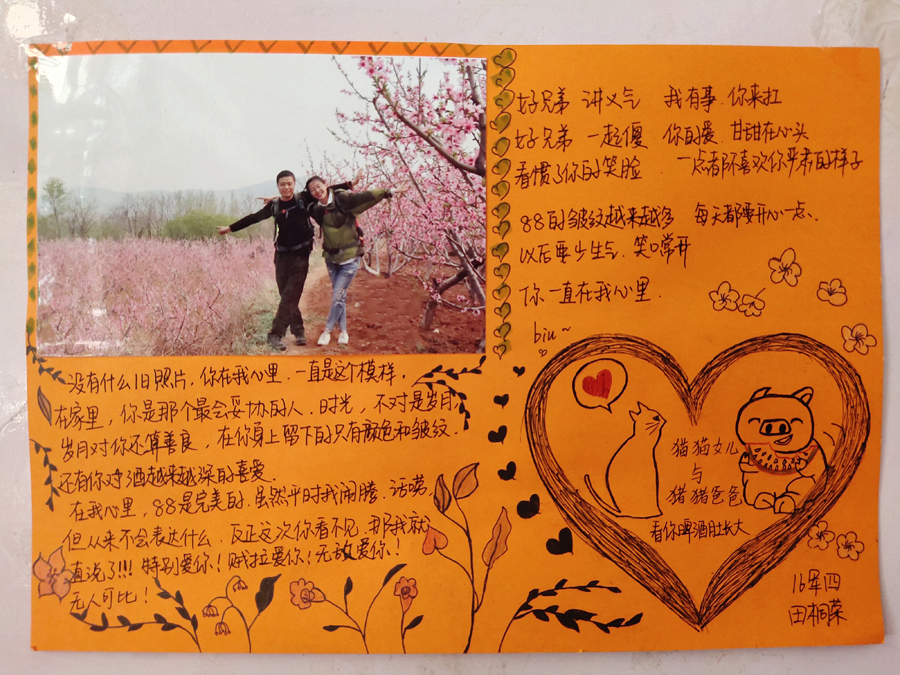 没有什么旧照片，你在我心里，一直是这个模样，
在家里，你是那个最会妥协的人，时光，不对是岁月，
岁月对你还算善良，在你身上留下的只有颜色和皱纹.
还有你对酒越来越深的喜爱.
在我心里，88是完美的.虽然平时我闹腾、话唠，
但从来不会表达什么，反正这次你看不见，那我就
直说了!!!特别爱你！贼拉爱你！无敌爱你！
无人可比！
好兄弟 讲义气 我有事.你来扛
好兄弟 一起傻 你的爱.甘甜在心头
看惯了你的笑脸 一点都不喜欢你严肃的样子
88的皱纹越来越多 每天都要开心一点、
以后要少生气.笑口常开
你一直在我心里.
biu~
猫猫女儿
与
猪猪爸爸
看你啤酒肚长大
16军四
田桐荣